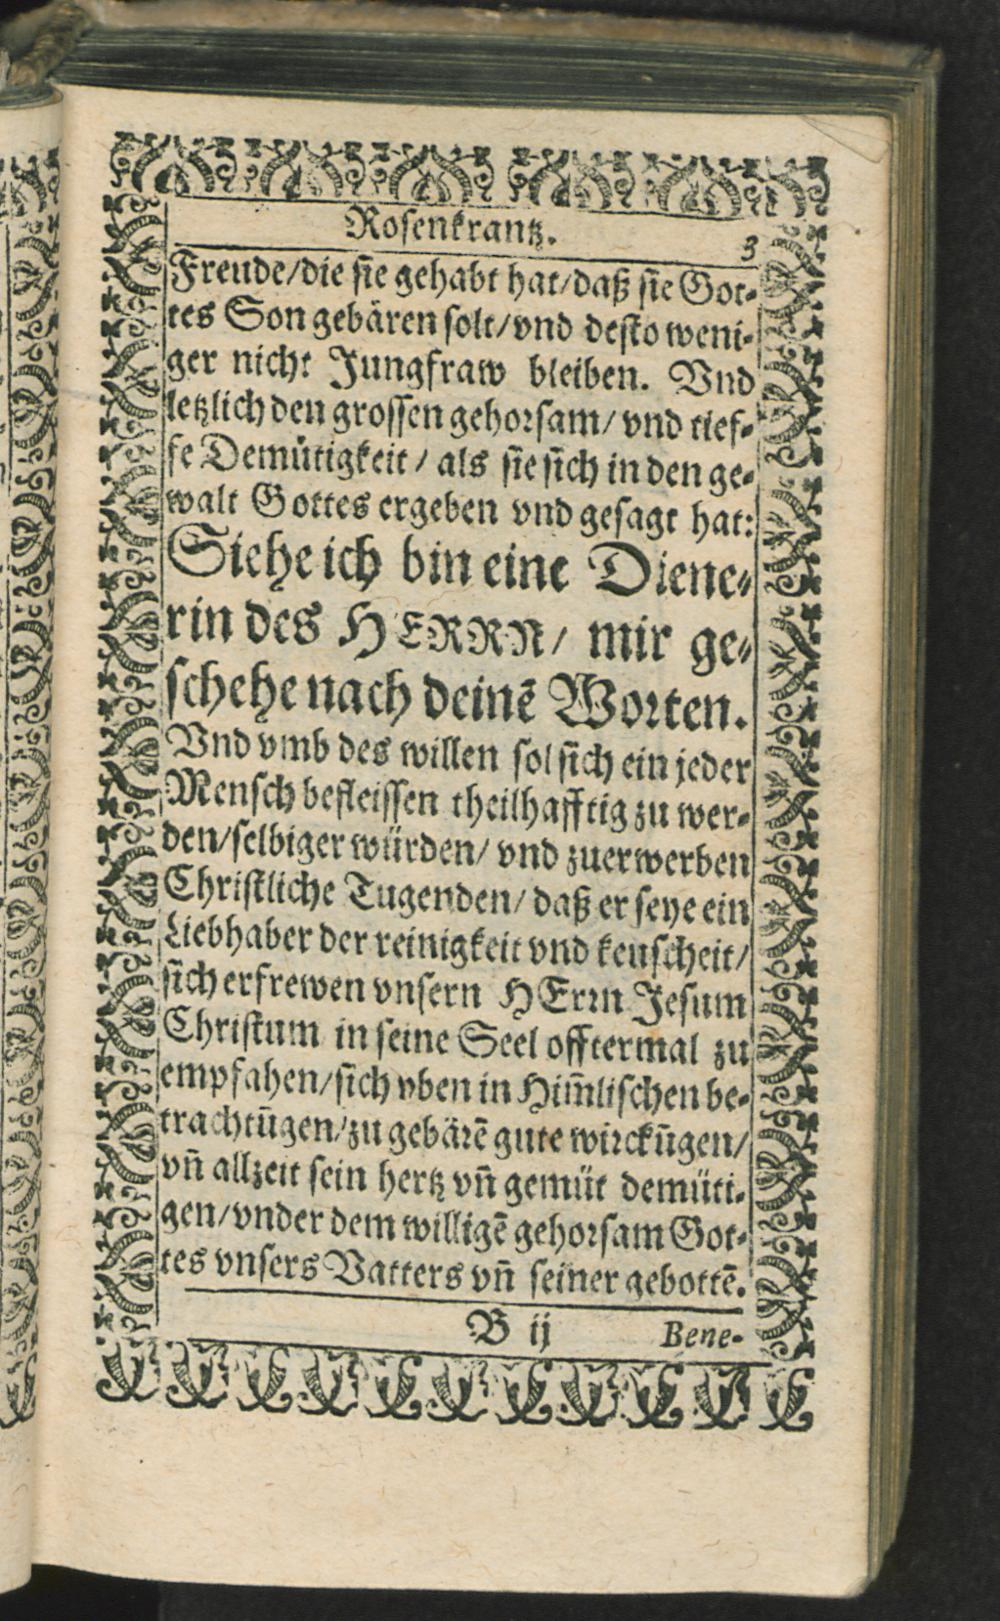 Rosenkrantz. 3
Freude/die sie gehabt hat/daß sie Got-
tes Son gebären solt/vnd desto weni-
ger nicht Jungfraw bleiben. Vnd
letzlich den grossen gehorsam/ vnd tief-
fe Demütigkeit/ als sie sich in den ge-
walt Gottes ergeben vnd gesagt hat:
Siehe ich bin eine Diene-
rin des HERRN/ mir ge-
schehe nach deinẽ Worten.
Vnd vmb des willen sol sich ein jeder
Mensch befleissen theilhafftig zu wer-
den/selbiger würden/ vnd zuerwerben
Christliche Tugenden/ daß er seye ein
Liebhaber der reinigkeit vnd keuscheit/
sich erfrewen vnsern HErrn Jesum
Christum in seine Seel offtermal zu
empfahen/sich vben in Him̃lischen be-
trachtũgen/zu gebärẽ gute wirckũgen/
vñ allzeit sein hertz vñ gemüt demüti-
gen/vnder dem willigẽ gehorsam Got-
tes vnsers Vatters vñ seiner gebottẽ.
B ij Bene-